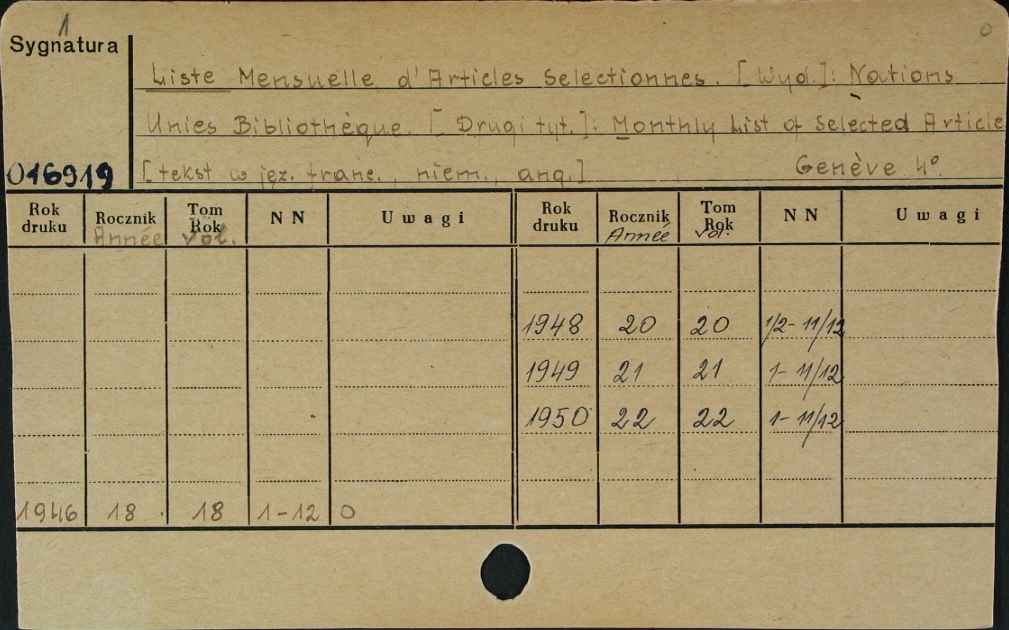 1
0
Sygnatura
Liste Mensuelle d'Articles Selectionnes. [Wyd.]: Nations
Unies Bibliothèque. [Drugi tyt.]: Monthly List of Selected Article
016919
[tekst w jęz. franc., niem., ang.] Genève 4°.
Rok druku Rocznik Tom Rok NN Uwagi Rok druku Rocznik Tom Rok NN Uwagi
Année Vol. Année Vol.
1948 20 20 1/2-11/12
1949 21 21 1-11/12
1950 22 22 1-11/12
1946 18 18 1-12 0